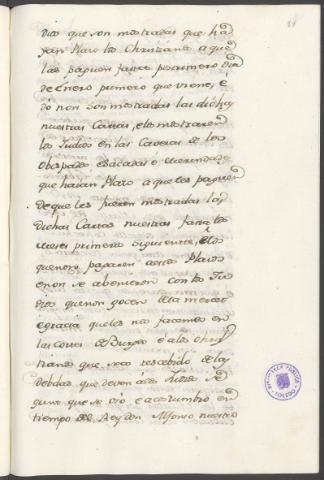 dias que son mostradas que ha
yan Plazo los Christianos a que
las paguen fasta postrimero dia
de Enero primero que viene, e
do non son mostradas las dichas
nuestras Cartas, e los mostraren
los Judios en las Caveras de los
Obispados e sacadas e merindades
que hayan Plazo a que les paguen
de que les fueren mostradas las
dichas Cartas nuestras fasta tres
meses primeros siguientes, e los
que non pagaren a estos Plazos
e non se abenieren con los Ju
dios que non gocen de la merced
e gracia que les nos facemos en
las Cortes de Burgos e a los Chris
tianos que sea rescebido de las
debdas que deven a los Judios se
gunt que se usó e acostumbró en
tiempo del Rey don Alfonso nuestro
BIBLIOTECA PUBLICA
TOLEDO